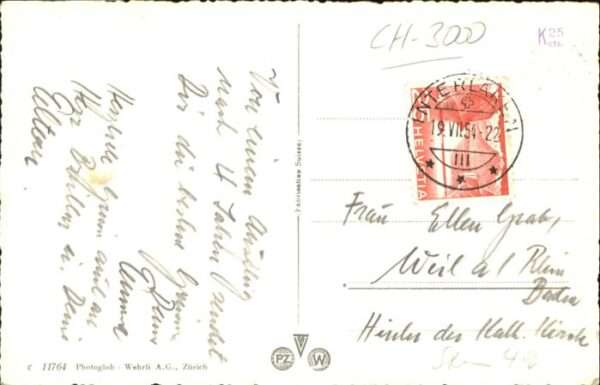 Von einem Ausflug
nach 4 Jahren sendet
Dir die besten Grüsse
Deine
Herzliche Grüsse auch an
Herr
Eltern
CH-3000
K25
INTERLAKEN
19.VII.54-22
III
HELVETIA
Frau Ellen Grab,
Weil a/Rhein
Baden
Hinter der Kath. Kirche
Fabrication Suisse
PZ W
11764 Photoglob - Wehrli A.G., Zürich